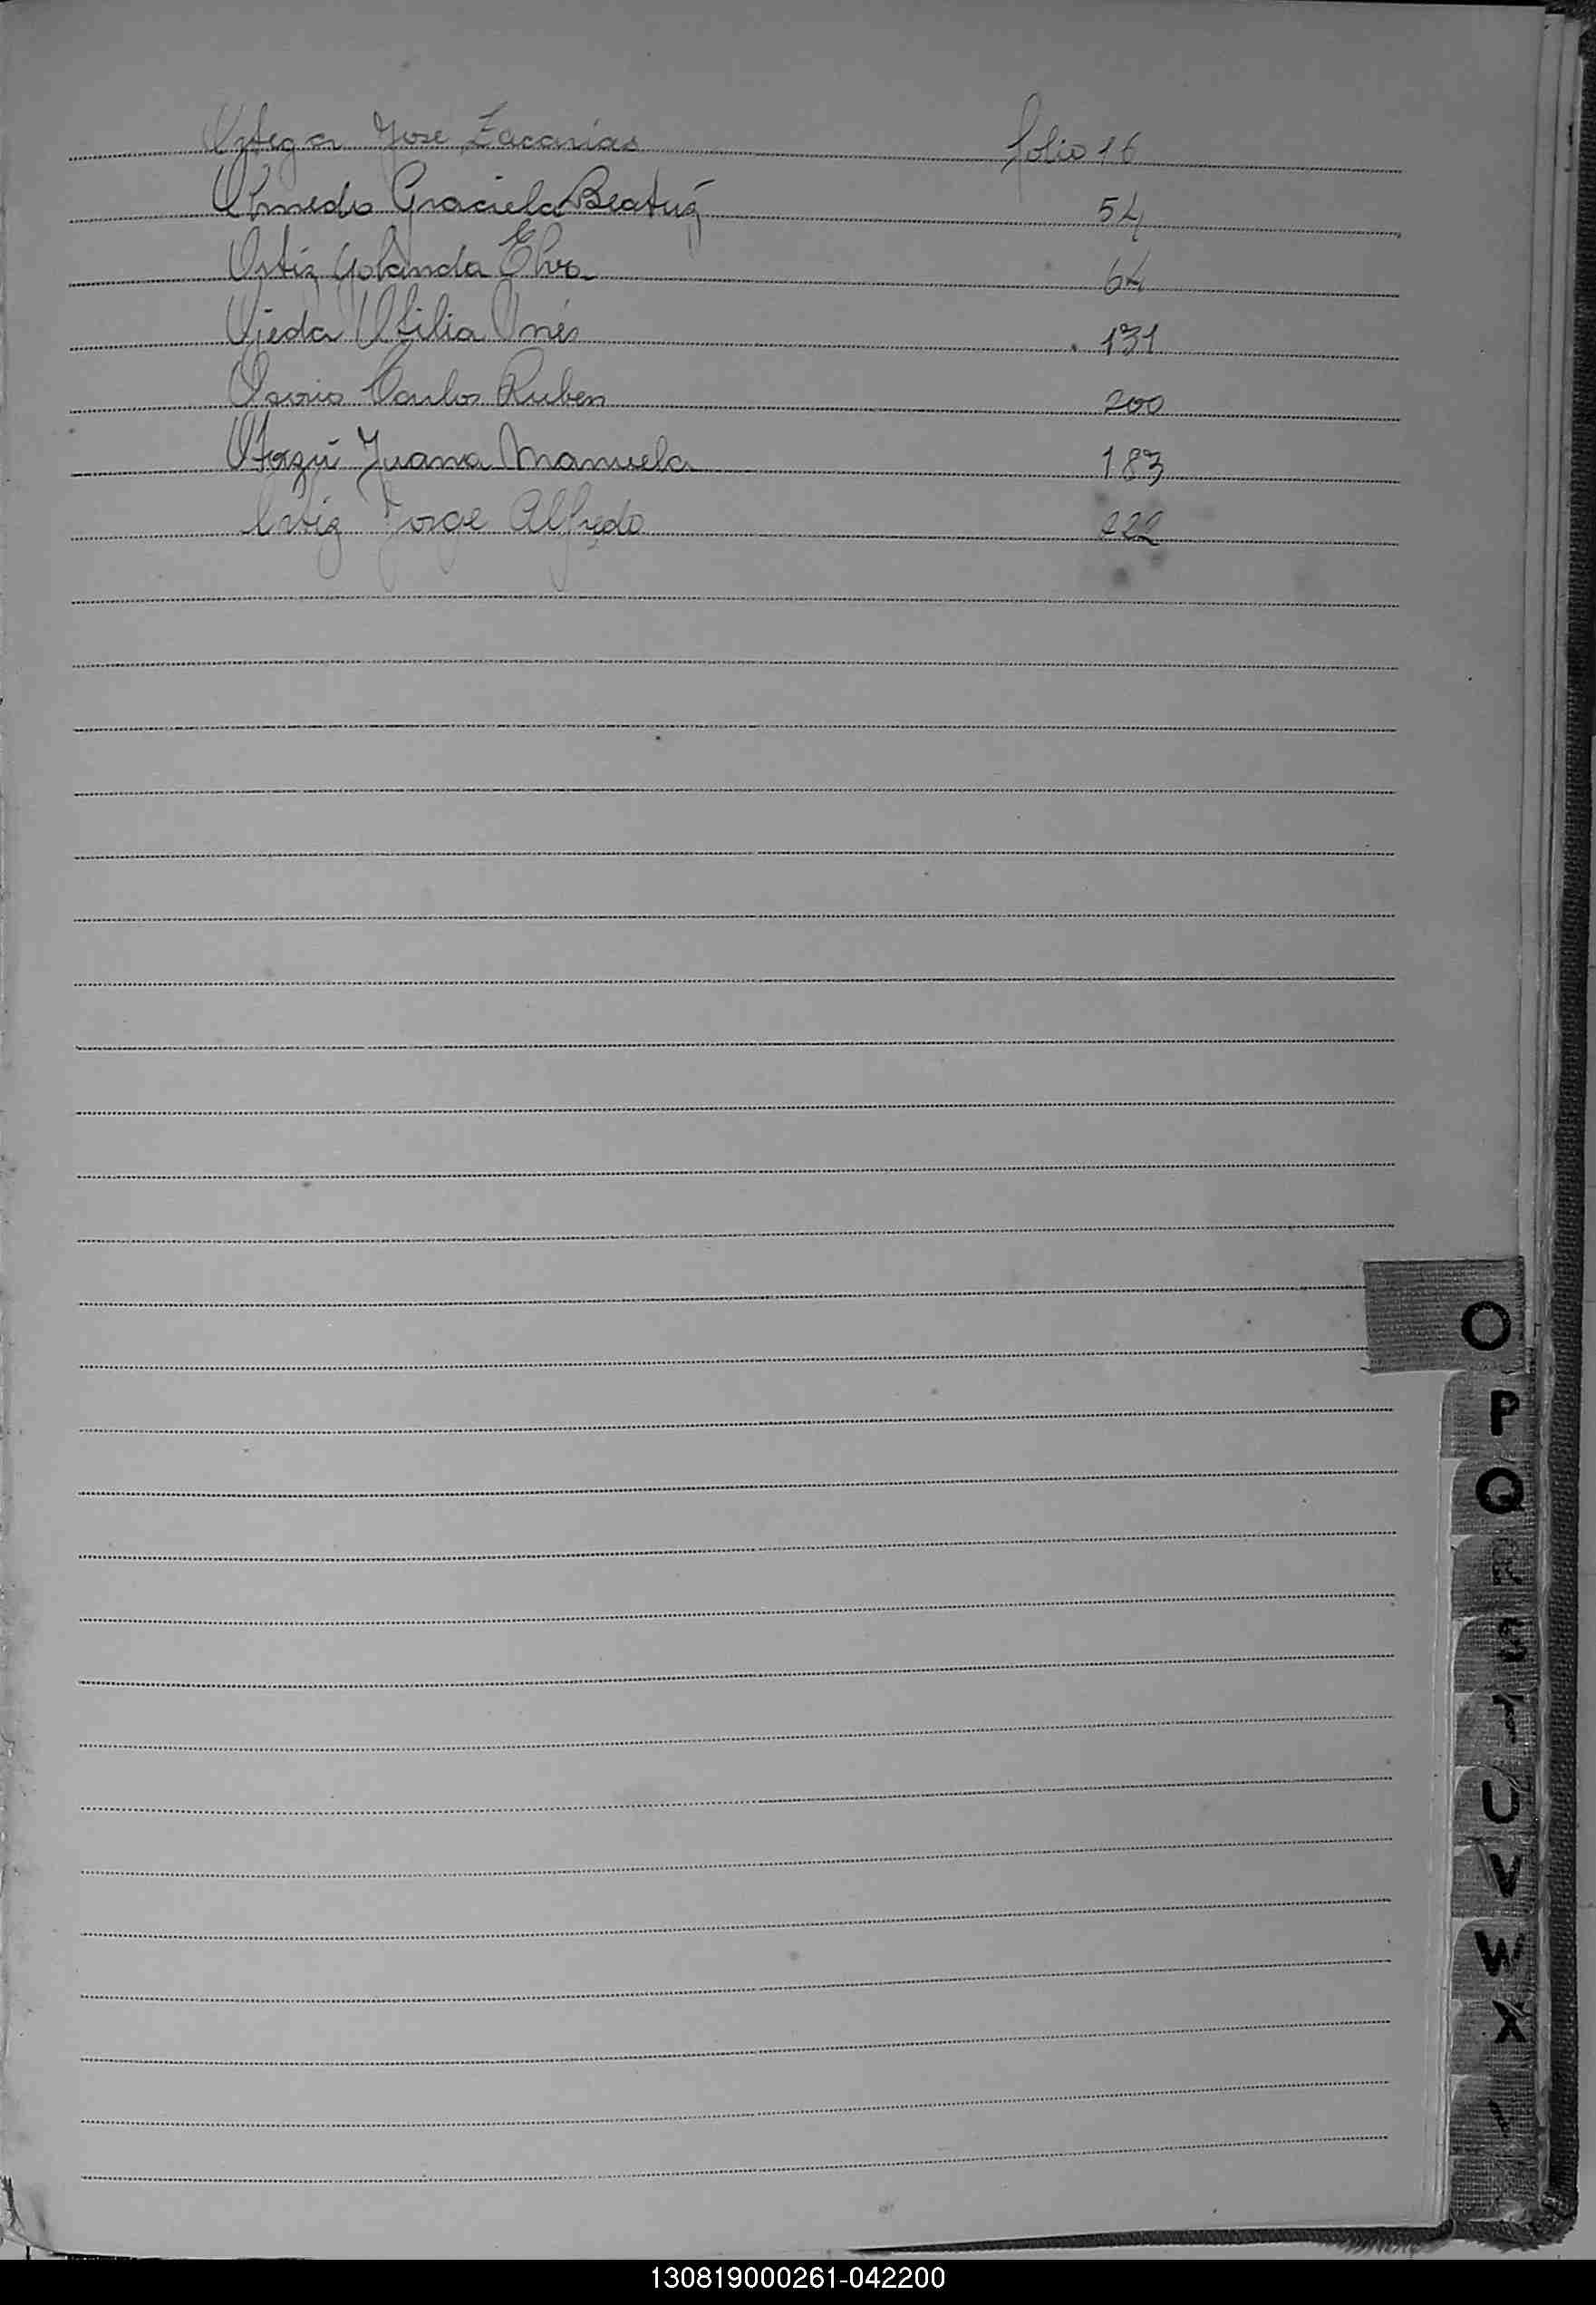 Ortega Jose Zacarias folio 16
Olmedo Graciela Beatriz 54
Ortiz Yolanda Elva 64
Ojeda Otilia Inés 131
Osorio Carlos Ruben 200
Otazú Juana Manuela 183
Ortiz Jorge Alfredo 222
O
P
Q
R
S
T
U
V
W
X
130819000261-042200